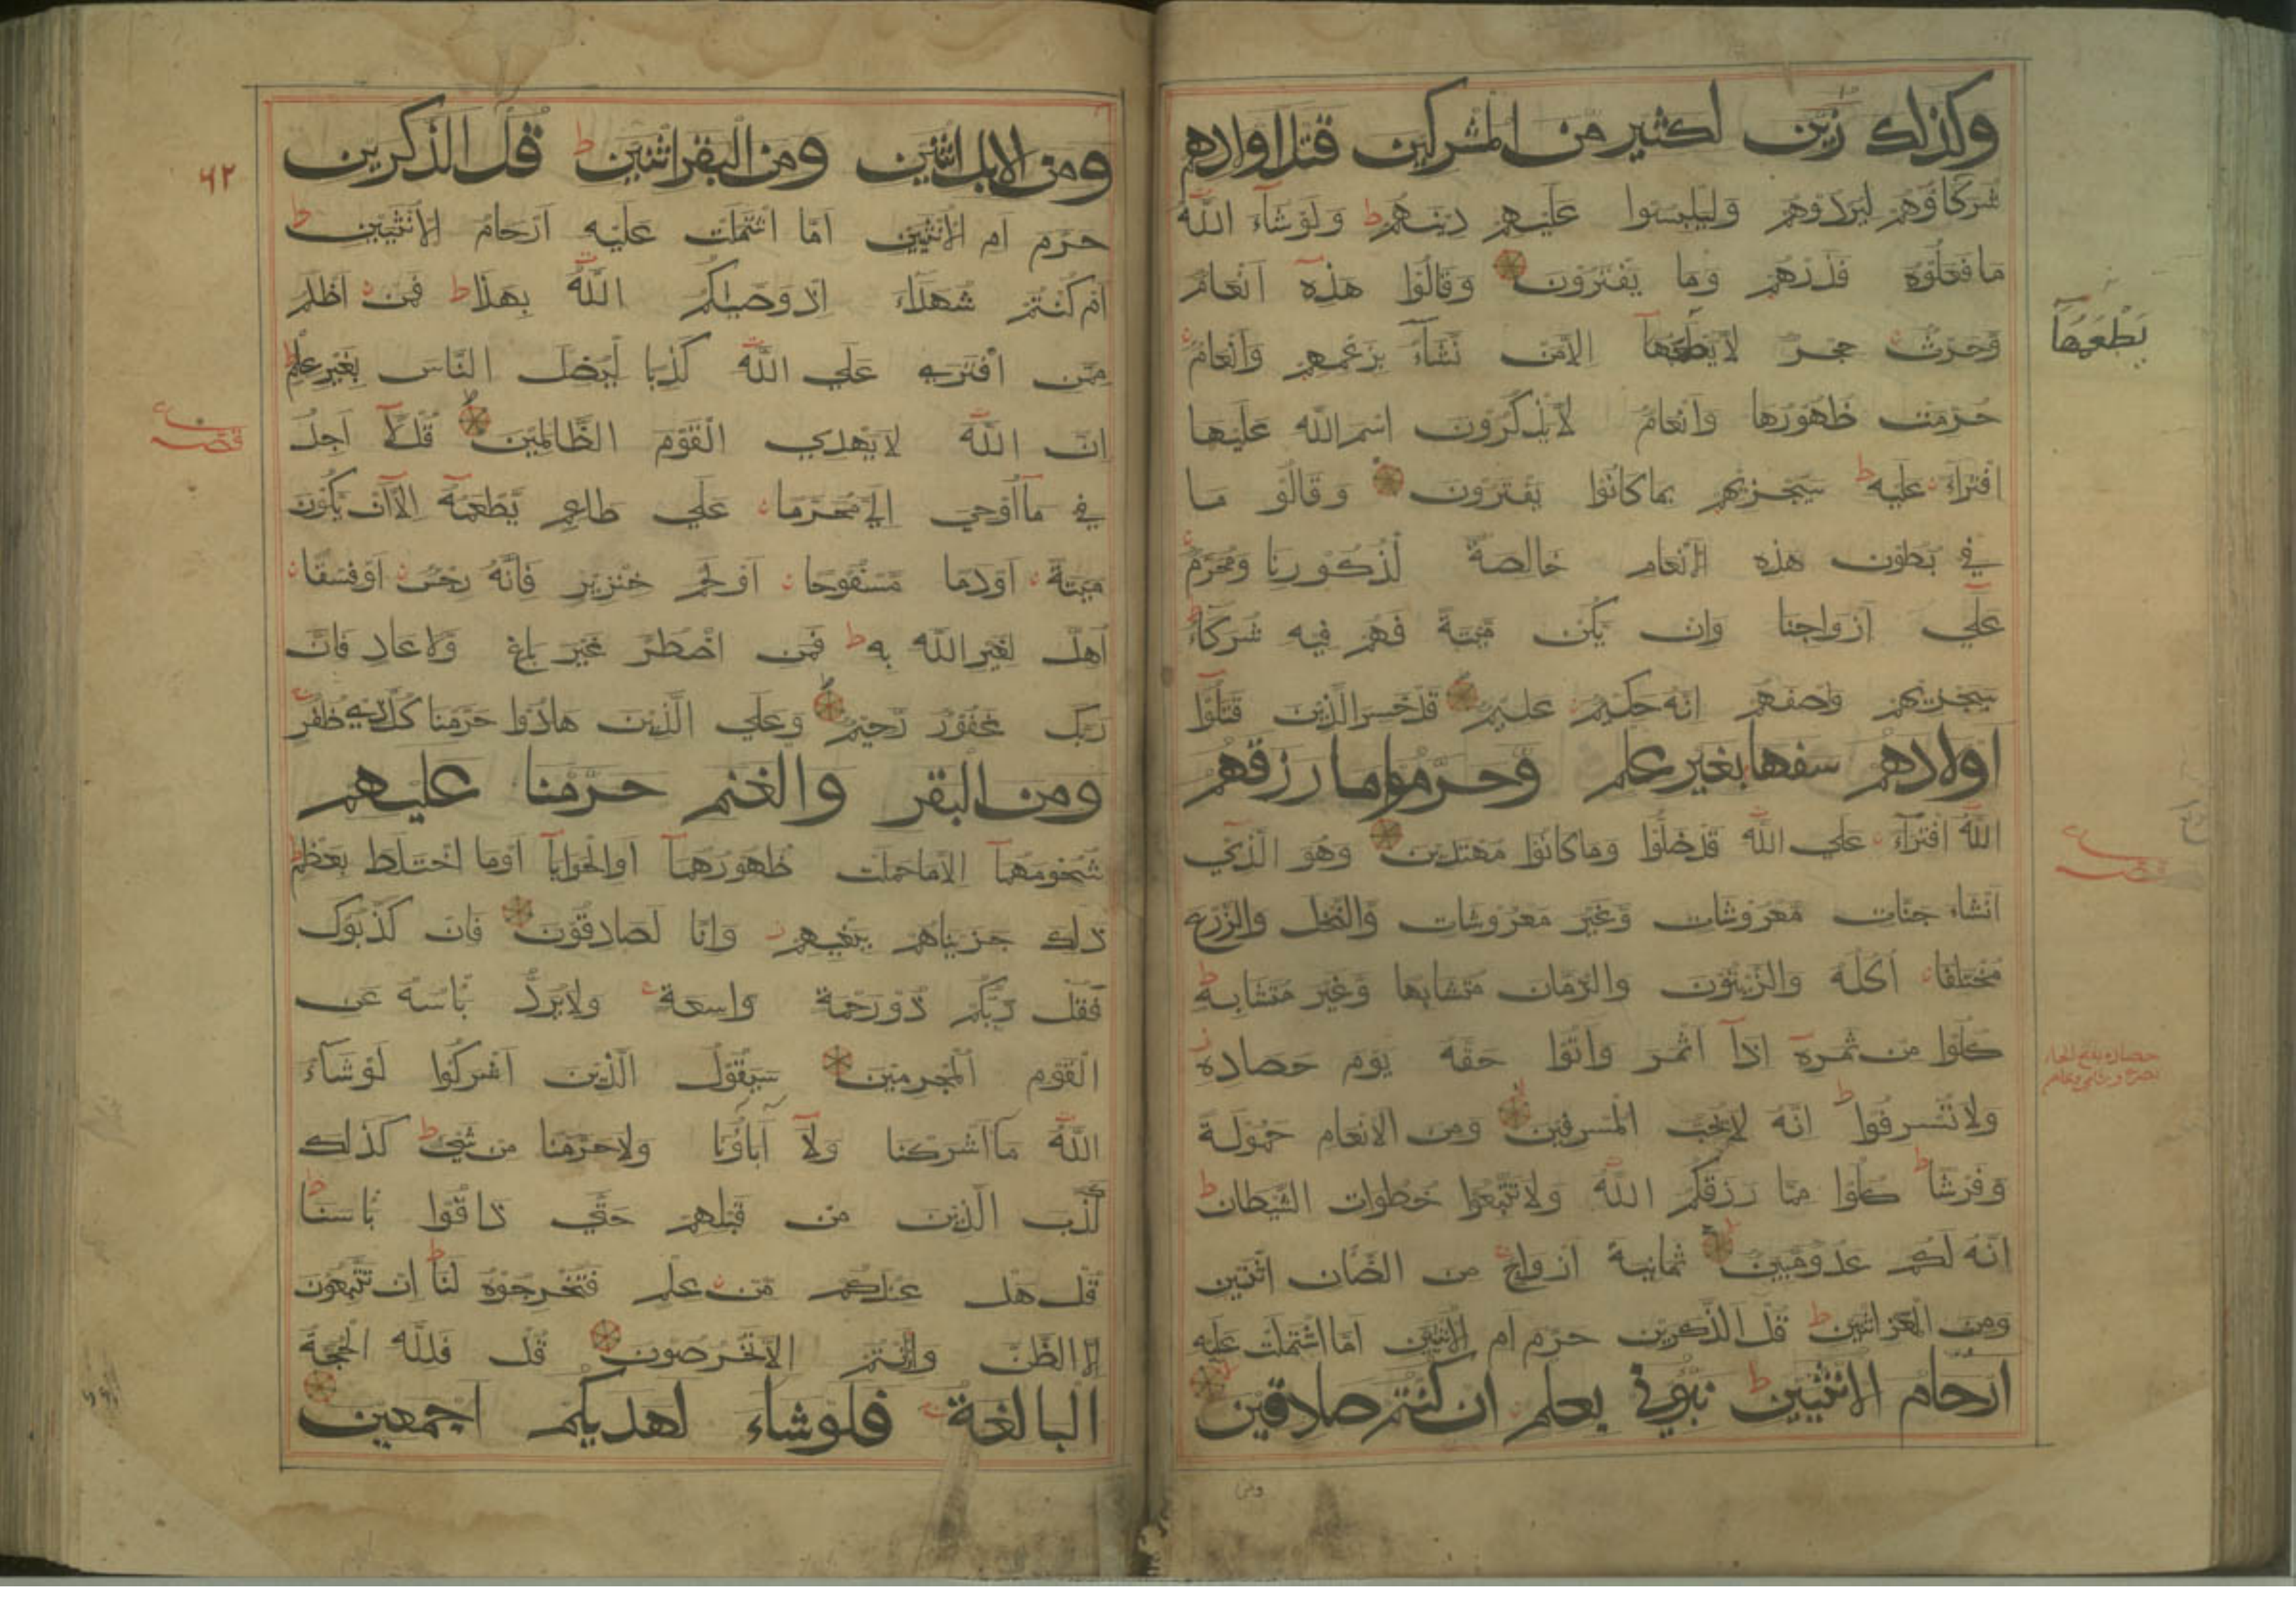 وكذلك زين لكثير من المشركين قتل اولادهم
شركاؤهم ليردوهم وليلبسوا عليهم دينهم ط ولو شاء الله
ما فعلوه فذرهم وما يفترون وقالوا هذه انعام
وحرث حجر لا يطعمها الا من نشاء بزعمهم وانعام
يطعمها
حرمت ظهورها وانعام لا يذكرون اسم الله عليها
افتراء عليه ط سيجزيهم بما كانوا يفترون وقالوا ما
في بطون هذه الانعام خالصة لذكورنا ومحرم
علي ازواجنا وان يكن ميتة فهم فيه شركاء
سيجزيهم وصفهم انه حكيم عليم قد خسر الذين قتلوا
اولادهم سفها بغير علم وحرموا ما رزقهم
الله افتراء علي الله قد ضلوا وما كانوا مهتدين وهو الذي
انشاء جنات معروشات وغير معروشات والنخل والزرع
مختلفا اكله والزيتون والرمان متشابها وغير متشابه ط
كلوا من ثمره اذا اثمر واتوا حقه يوم حصاده
ولا تسرفوا ط انه لا يحب المسرفين ومن الانعام حمولة
وفرشا ط كلوا مما رزقكم الله ولا تتبعوا خطوات الشيطان ط
انه لكم عدو مبين ثمانية ازواج من الضأن اثنين
ومن المعز اثنين ط قل الذكرين حرم ام الانثيين اما اشتملت عليه
ارحام الانثيين ط نبؤني بعلم ان كنتم صادقين
ومن
٦٢
ومن الابل اثنين ومن البقر اثنين ط قل الذكرين
حرم ام الانثيين اما اشتملت عليه ارحام الانثيين ط
ام كنتم شهداء اذ وصيكم الله بهذا ط فمن اظلم
ممن افتري علي الله كذبا ليضل الناس بغير علم ط
ان الله لا يهدي القوم الظالمين قل لا اجد
في ما اوحي الي محرما علي طاعم يطعمه الا ان يكون
ميتة او دما مسفوحا او لحم خنزير فانه رجس او فسقا
اهل لغير الله به ط فمن اضطر غير باغ ولا عاد فان
ربك غفور رحيم وعلي الذين هادوا حرمنا كل ذي ظفر
ومن البقر والغنم حرمنا عليهم
شحومهما الا ما حملت ظهورهما او الحوايا او ما اختلط بعظم ط
ذلك جزيناهم ببغيهم وانا لصادقون فان كذبوك
فقل ربكم ذو رحمة واسعة ولا يرد باسه عن
القوم المجرمين سيقول الذين اشركوا لو شاء
الله ما اشركنا ولا آباؤنا ولا حرمنا من شيء ط كذلك
كذب الذين من قبلهم حتي ذاقوا باسنا ط
قل هل عندكم من علم فتخرجوه لنا ط ان تتبعون
الا الظن وان انتم الا تخرصون قل فلله الحجة
البالغة فلو شاء لهديكم اجمعين